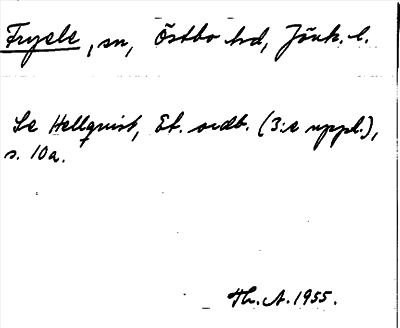 Fryele, sn, Östbo hd, Jönk. l.
Se Hellquist, Et. ordb. (3:e uppl.),
s. 10a.
Th. A. 1955.